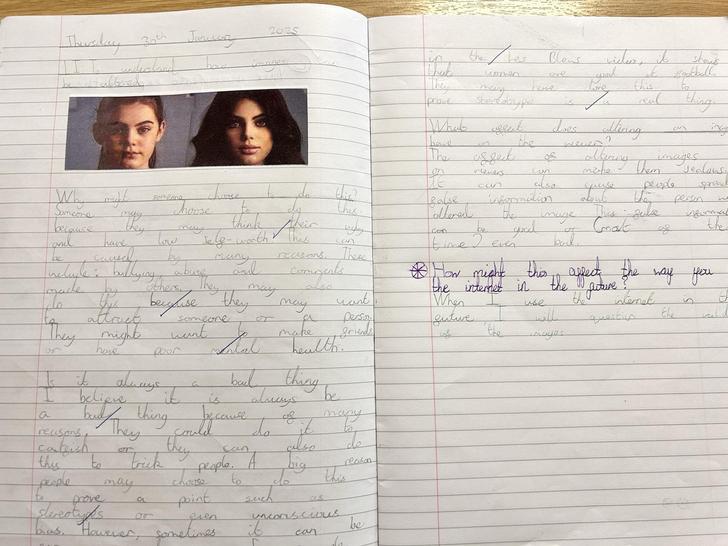 Thursday 30th January 2025
LI To understand how images can
be altered
Why might someone choose to do this?
Someone may choose to do this
because they may think their ugly
and have low self-worth This can
be caused by many reasons. These
include: bullying, abuse and comments
made by others. They may also
do this because they may want
to attract someone or a person.
They might want to make friends
or have poor mental health.
Is it always a bad thing
I believe it is always be
a bad thing because of many
reasons. They could do it to
catfish or they can also do
this to trick people. A big reason
people may choose to do this
to prove a point such as
stereotypes or even unconscious
bias. However, sometimes it can be
in the Les Bleus video, it shows
that women are good at football
They may have done this to
prove stereotype is a real thing.
What affect does altering an
have on the viewer?
The affect of altering images
on viewers can make them jealous.
It can also cause people spread
false information about the person
altered the image his false
can be good or (most of the
time) even bad.
How might this affect the way you
the internet in the future?
When I use the internet in
future I will question the
of the images